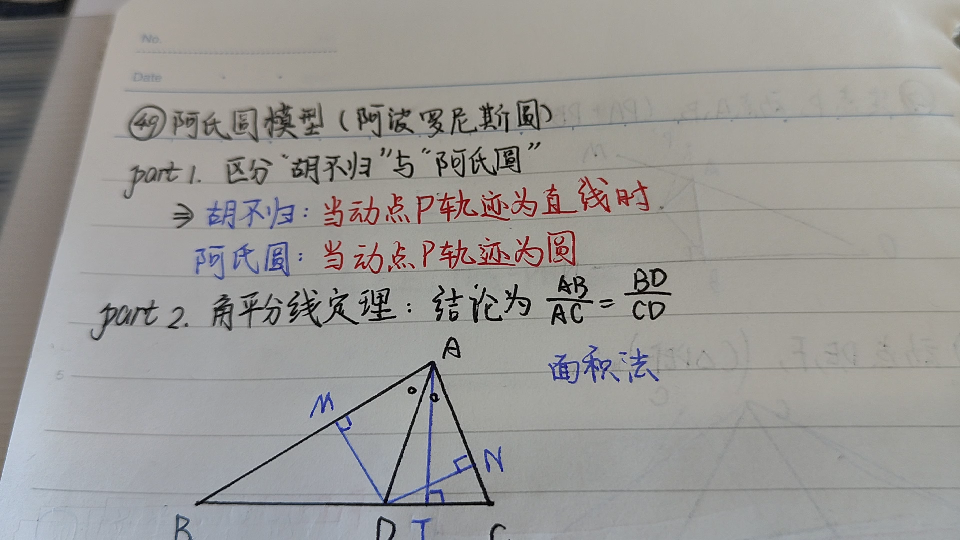 No.
Date
㊾阿氏圆模型(阿波罗尼斯圆)
part 1. 区分“胡不归”与“阿氏圆”
⇒ 胡不归:当动点P轨迹为直线时.
阿氏圆:当动点P轨迹为圆
part 2. 角平分线定理:结论为 AB/AC = BD/CD
面积法
A
M
N
B D T C
5